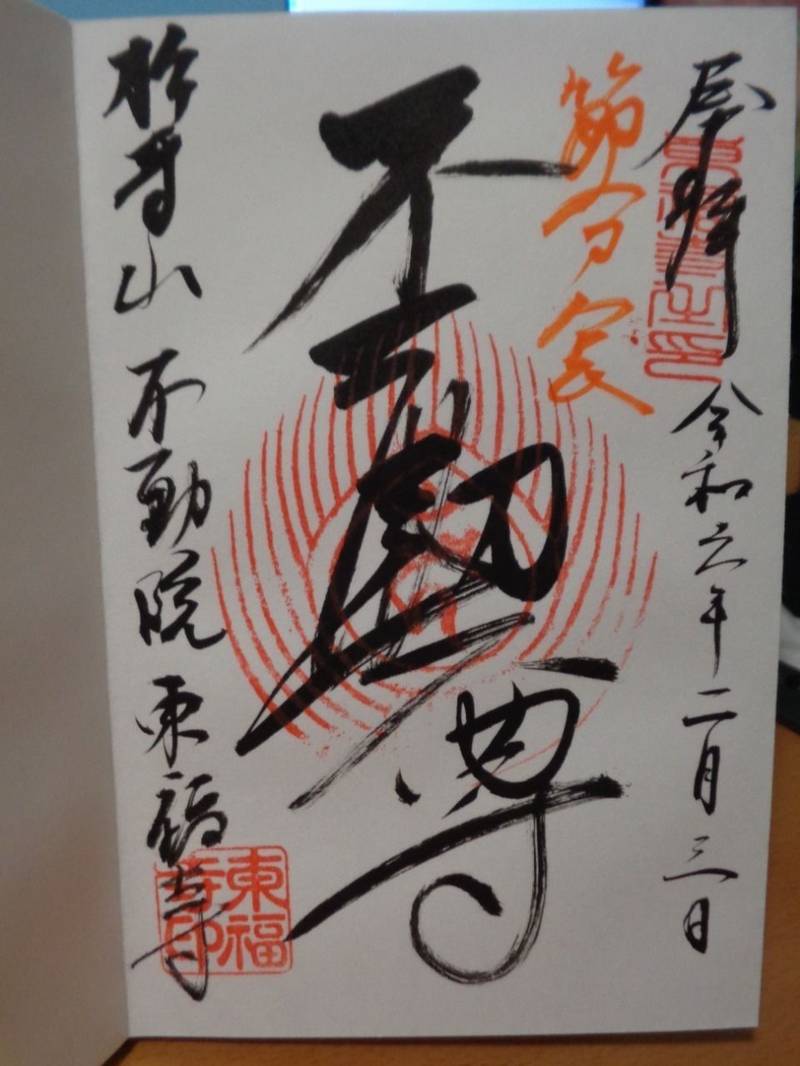 奉拝 令和六年二月三日
節分会
不動尊
松寿山 不動院 東福寺
東福寺印